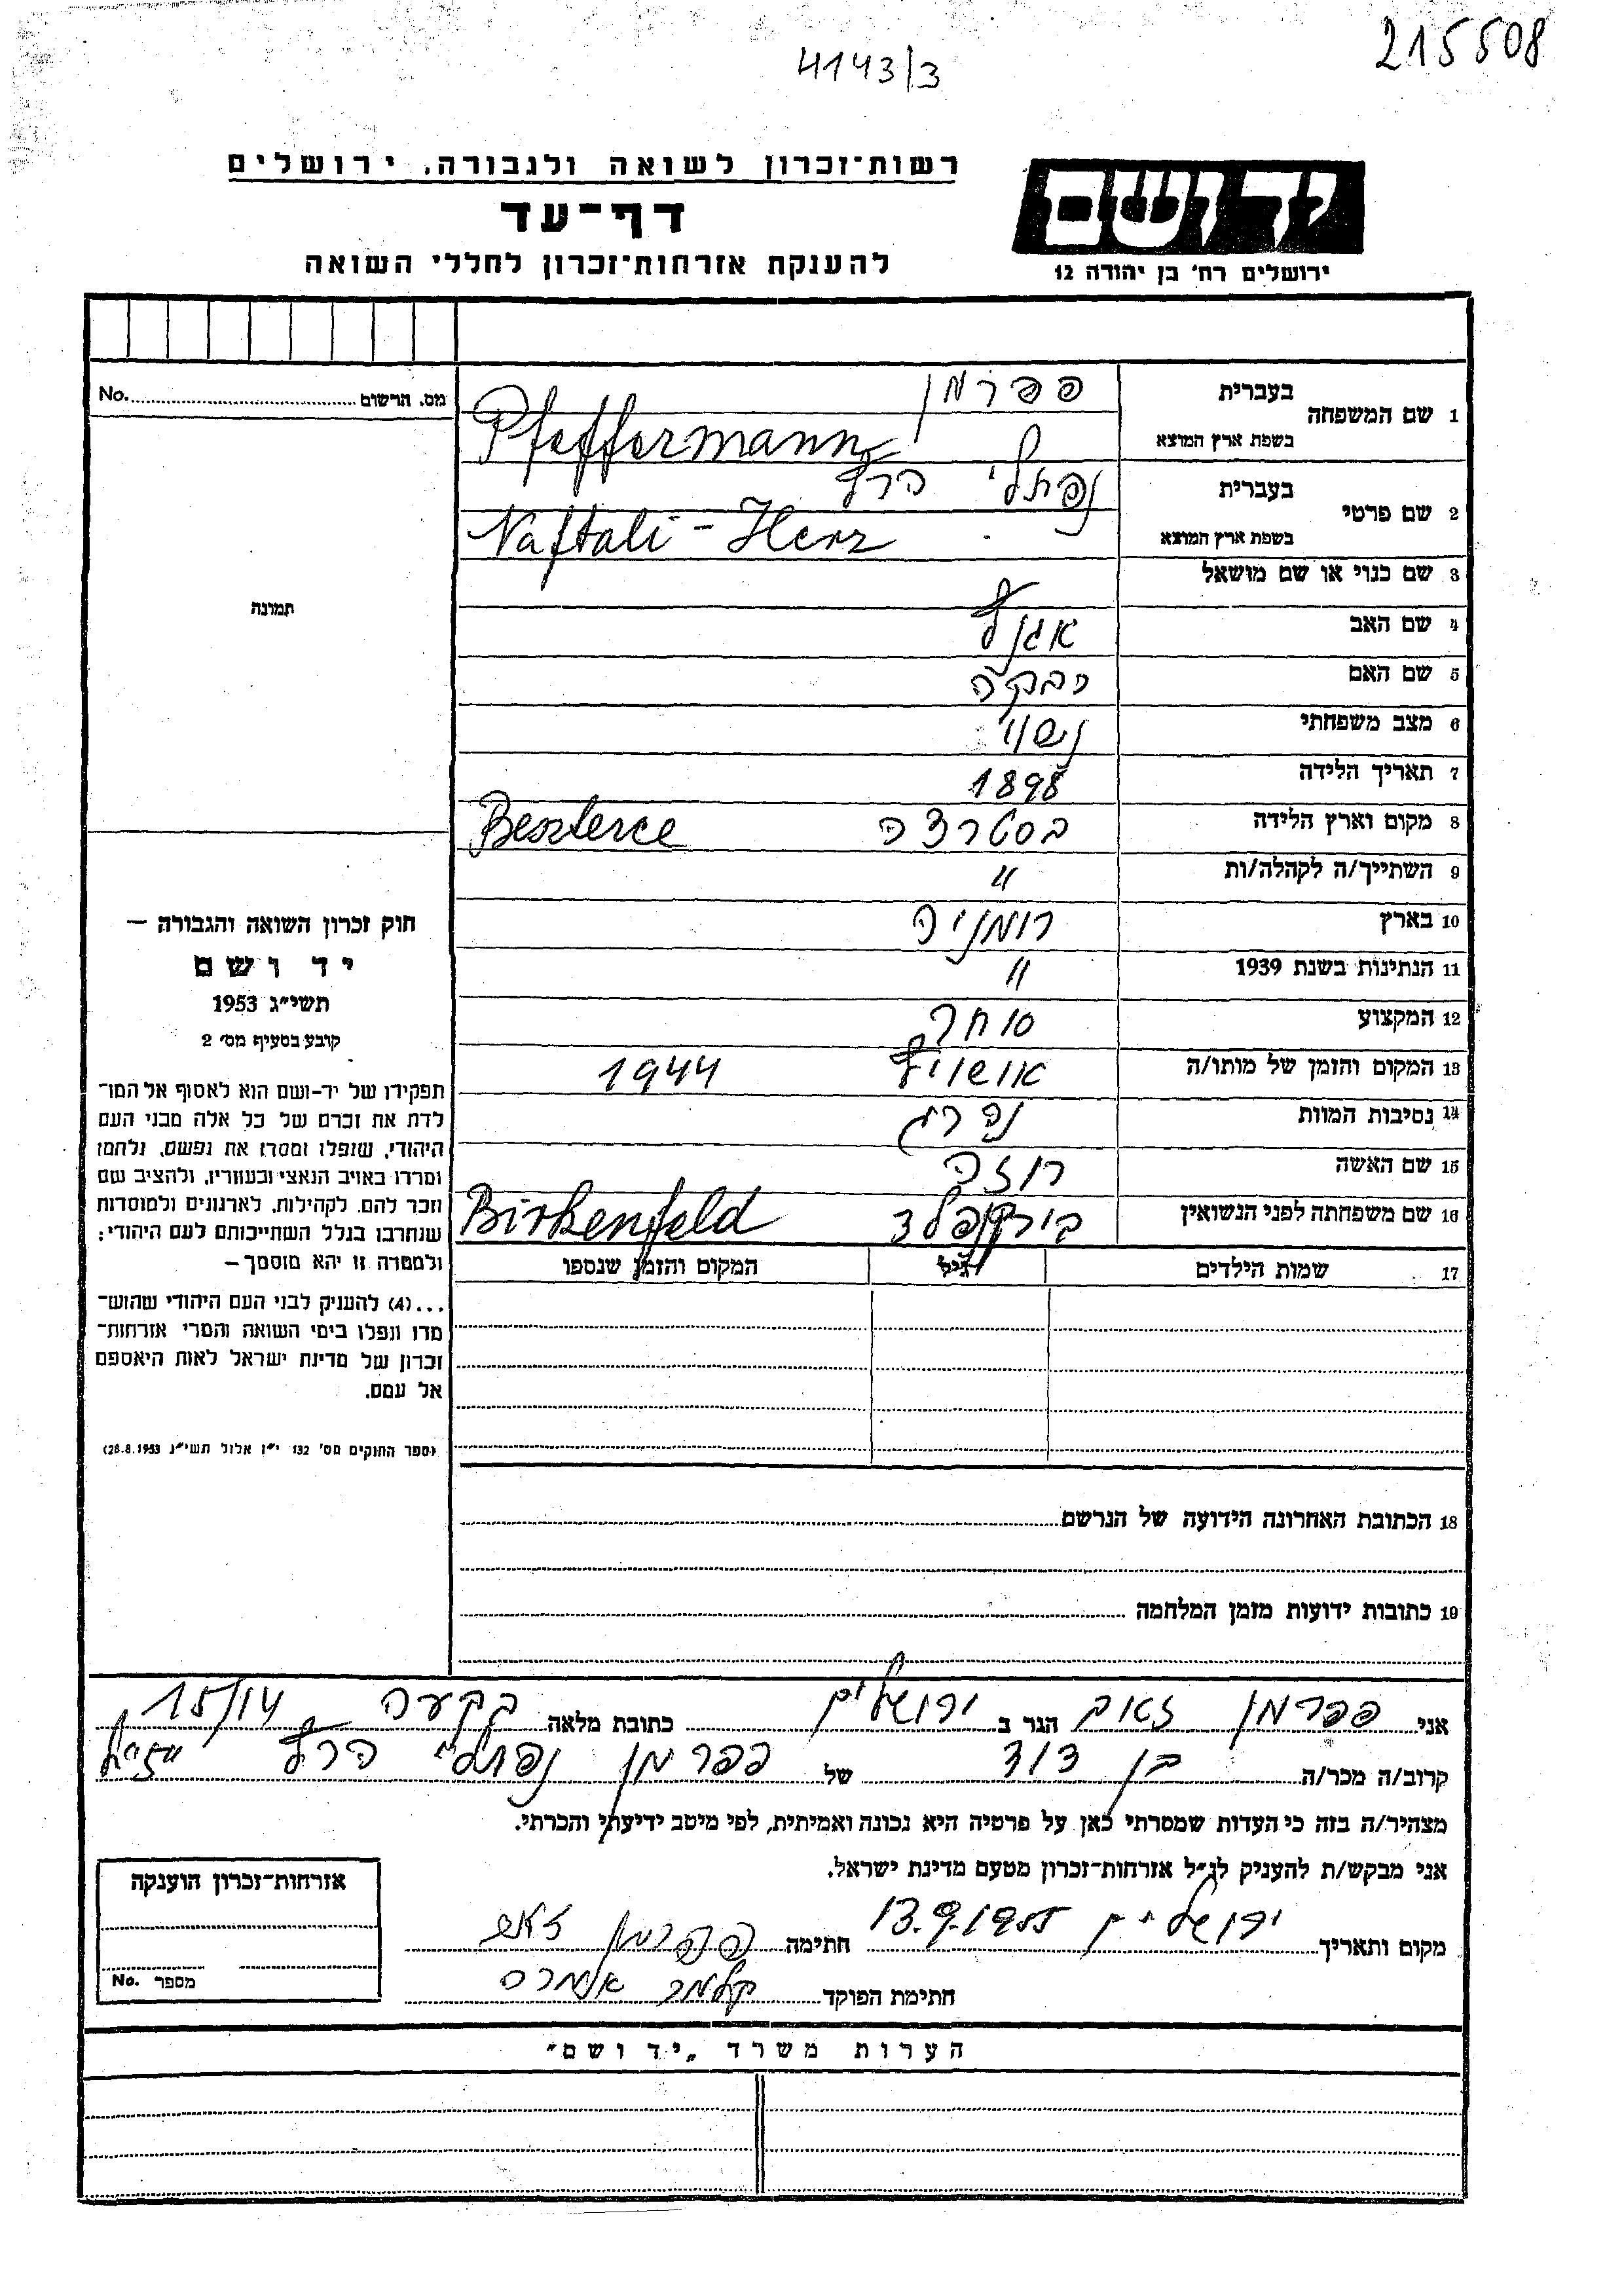 215508
4143/3
רשות־זכרון לשואה ולגבורה, ירושלים
דף־עד
להענקת אזרחות־זכרון לחללי השואה
יד ושם
ירושלים רח׳ בן יהודה 12
מס. הרשום No.
תמונה
1 שם המשפחה בעברית פפרמן
בשפת ארץ המוצא Pfeffermann
2 שם פרטי בעברית נפתלי הרץ
בשפת ארץ המוצא Naftali - Herz
3 שם כנוי או שם מושאל
4 שם האב
5 שם האם רבקה
6 מצב משפחתי נשוי
7 תאריך הלידה 1898
8 מקום וארץ הלידה בסטרצה Beszterce
9 השתייך/ה לקהלה/ות "
10 בארץ רומניה
11 הנתינות בשנת 1939 "
12 המקצוע סוחר
13 המקום והזמן של מותו/ה אושויץ 1944
14 נסיבות המוות נהרג
15 שם האשה רוזה
16 שם משפחתה לפני הנשואין בירקנפלד Birkenfeld
17 שמות הילדים גיל המקום והזמן שנספו
18 הכתובת האחרונה הידועה של הנרשם
19 כתובות ידועות מזמן המלחמה
חוק זכרון השואה והגבורה —
יד ושם
תשי״ג 1953
קובע בסעיף מס׳ 2
תפקידו של יד-ושם הוא לאסוף אל המו־
לדת את זכרם של כל אלה מבני העם
היהודי, שנפלו ומסרו את נפשם, נלחמו
ומרדו באויב הנאצי ובעוזריו, ולהציב שם
וזכר להם, לקהילות, לארגונים ולמוסדות
שנחרבו בגלל השתייכותם לעם היהודי;
ולמטרה זו יהא מוסמך —
...(4) להעניק לבני העם היהודי שהוש־
מדו ונפלו בימי השואה והמרי אזרחות־
זכרון של מדינת ישראל לאות היאספם
אל עמם.
(ספר החוקים מס׳ 132 י״ז אלול תשי״ג 28.8.1953)
אני פפרמן זאב הגר ב ירושלים כתובת מלאה בקעה 15/14
קרוב/ה מכר/ה בן דוד של פפרמן נפתלי הרץ
מצהיר/ה בזה כי העדות שמסרתי כאן על פרטיה היא נכונה ואמיתית, לפי מיטב ידיעתי והכרתי.
אני מבקש/ת להעניק לנ״ל אזרחות־זכרון מטעם מדינת ישראל.
מקום ותאריך ירושלים 13.9.1955 חתימה פפרמן זאב
חתימת הפוקד
אזרחות־זכרון הוענקה
מספר No.
הערות משרד „יד ושם״